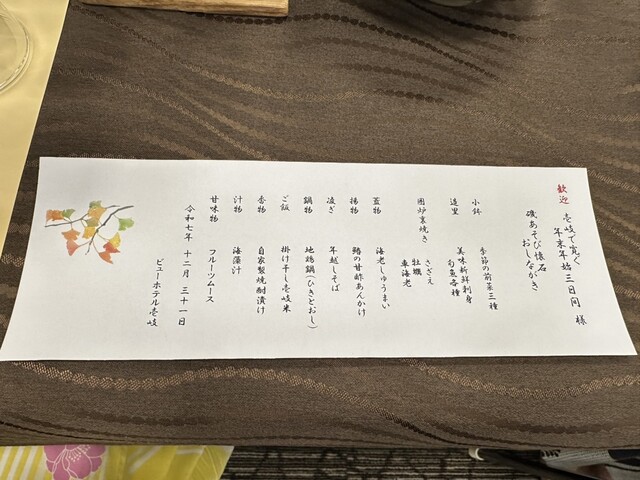 歓迎 壱岐で寛ぐ
年末年始三日間 様
磯あそび懐石
おしながき
小鉢 季節の前菜三種
造里 美味新鮮刺身
旬魚各種
囲炉裏焼き さざえ
牡蠣
車海老
蓋物 海老しゅうまい
揚物 鯖の甘酢あんかけ
凌ぎ 年越しそば
鍋物 地鶏鍋(ひきとおし)
ご飯 掛け干し壱岐米
香物 自家製焼酎漬け
汁物 海藻汁
甘味物 フルーツムース
令和七年 十二月 三十一日
ビューホテル壱岐